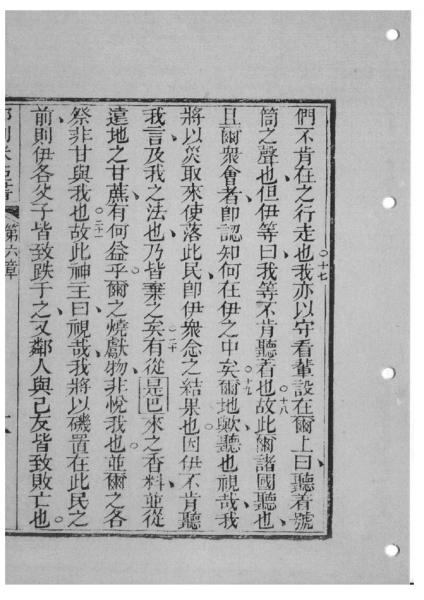 們不肯在之行走也○十七我亦以守看輩設在爾上曰聽着號
筒之聲也但伊等曰我等不肯聽着也○十八故此爾諸國聽也
且爾衆會者卽認知何在伊之中矣○十九爾地歟聽也視哉我
將以災取來使落此民卽伊衆念之結果也因伊不肯聽
我言及我之法也乃皆棄之矣○二十有從是巴來之香料並從
遠地之甘蔗有何益乎爾之燒獻物非悅我也並爾之各
祭非甘與我也○二十一故此神王曰視哉我將以磯置在此民之
前則伊各父子皆致跌于之又鄰人與己友皆致敗亡也
第六章